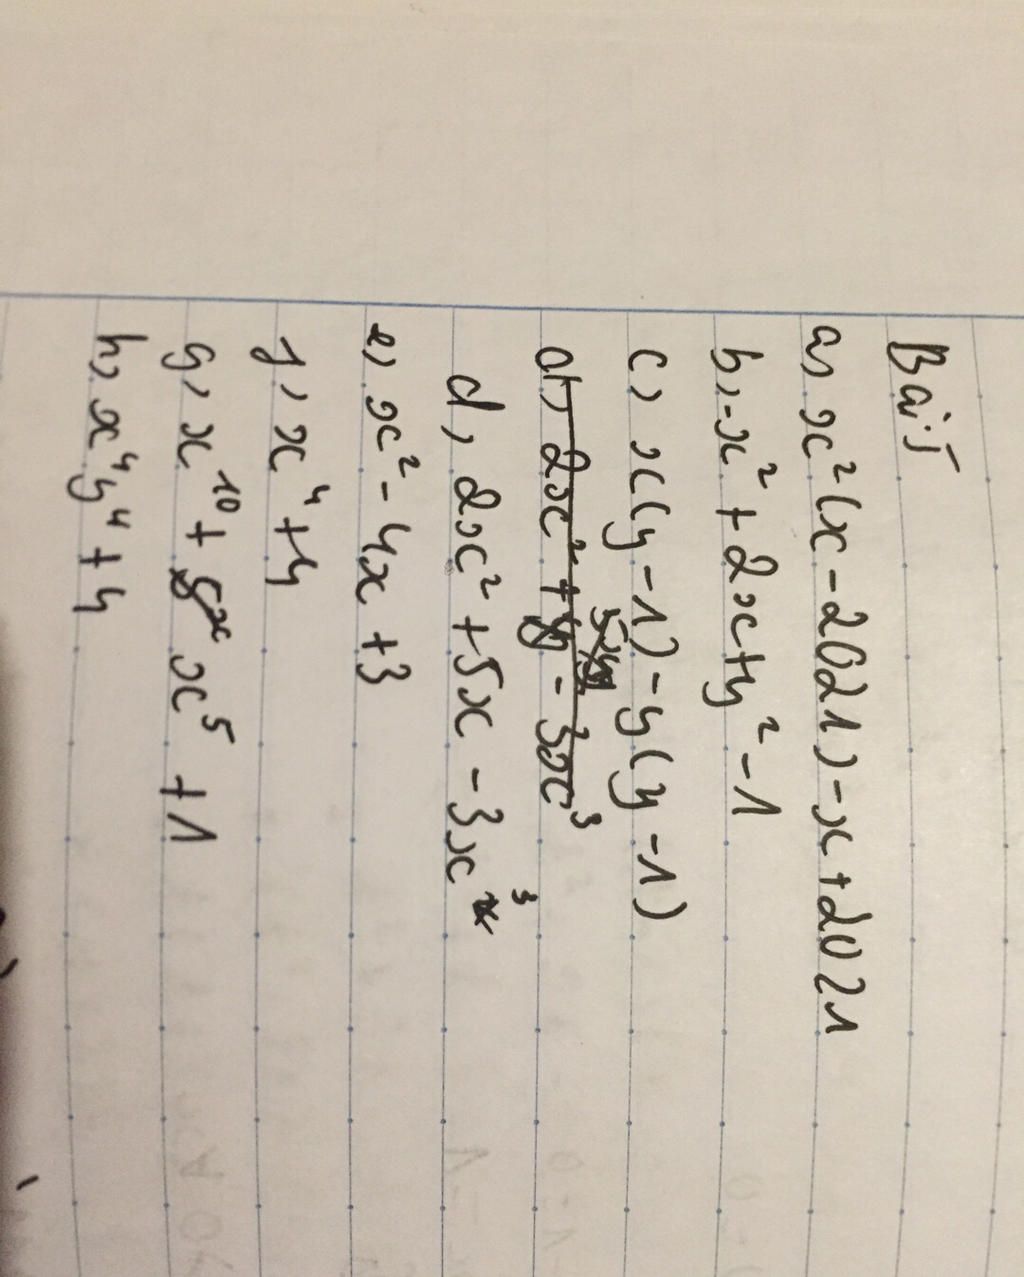 Bài 5
a, x²(x-2021)-x+2021
b, -x²+2x+y²-1
c, x(y-1)-y(y-1)
d, 2x²+5x-3x³
e, x²-4x+3
f, x⁴+4
g, x¹⁰+x⁵+1
h, x⁴y⁴+4